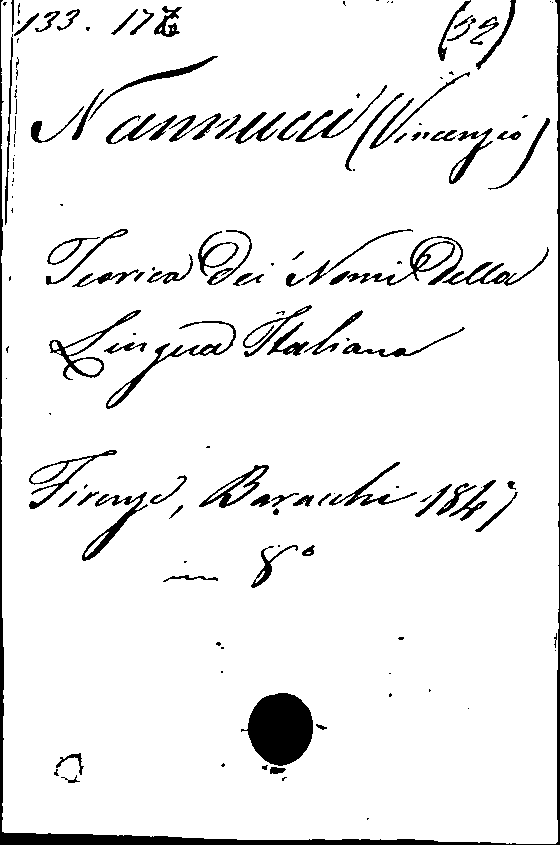 133. 17
(32)
Nannucci (Vincenzio)
Teorica Dei Nomi Della
Lingua Italiana
Firenze, Baracchi 1847
in 8°